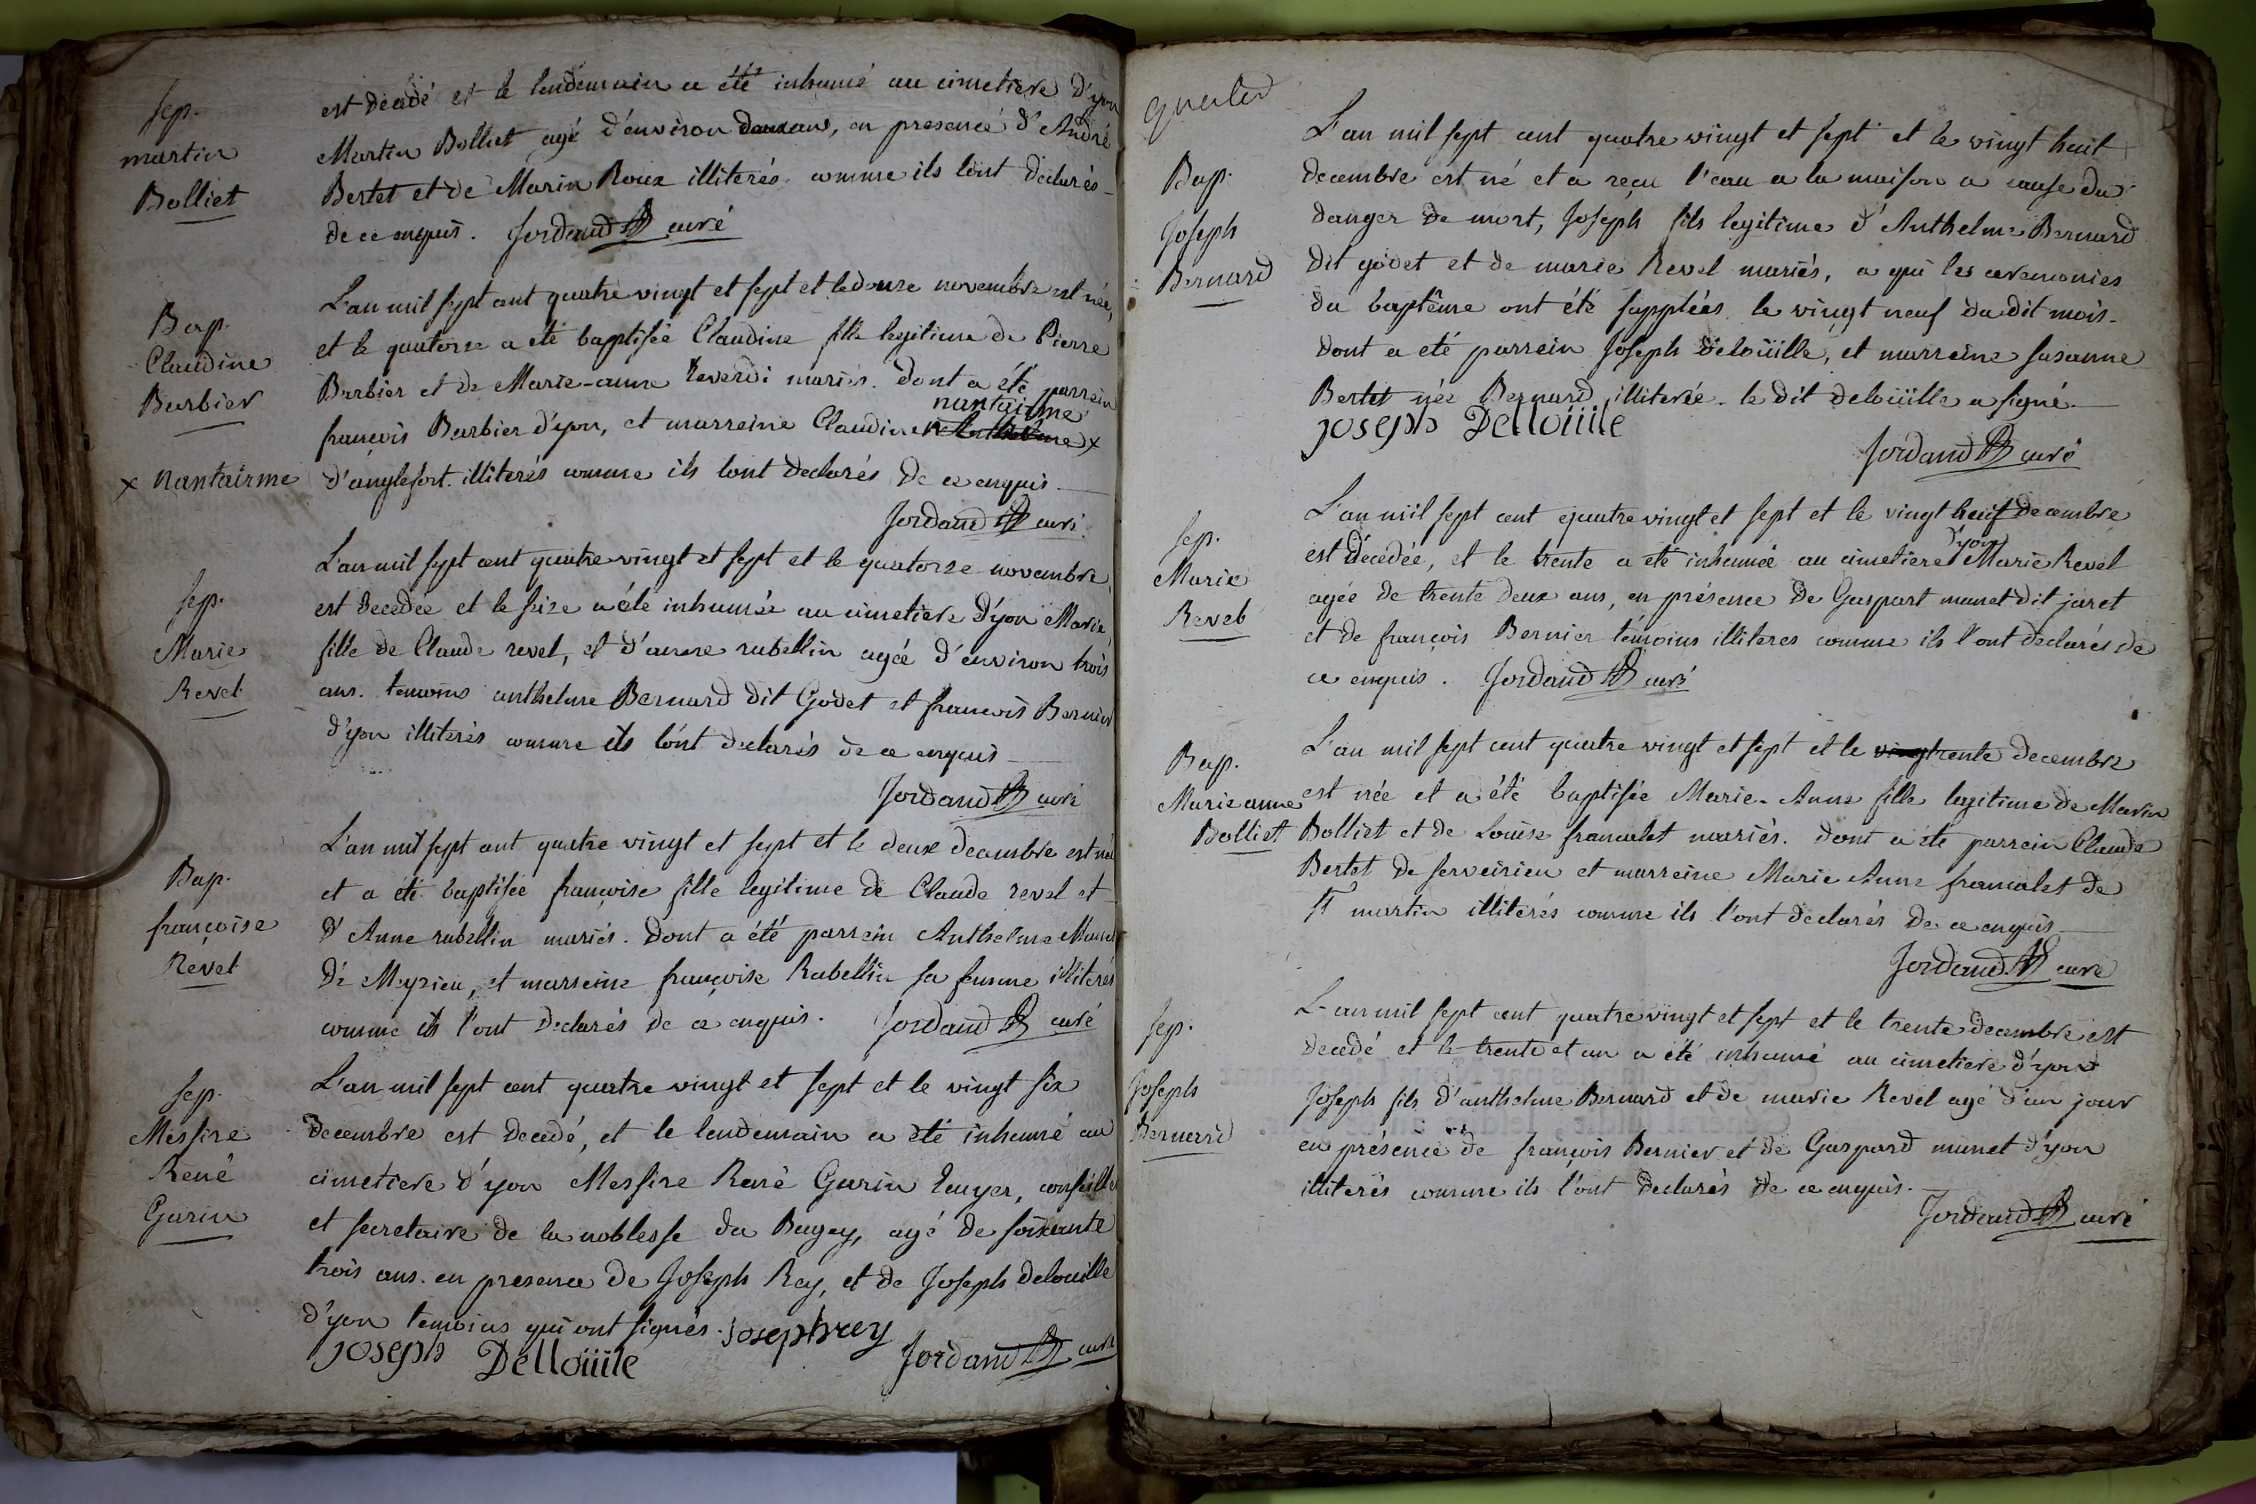 Sep.
martin
Bolliet
est décédé et le lendemain a été inhumé au cimetiere d'yon
Martin Bolliet agé d'environ deux ans, en presence d'André
Bertet et de Marin Roux illiterés comme ils lont declarés
de ce enquis. Jordand curé
Bap.
Claudine
Barbier
x nantairme
L'an mil sept cent quatre vingt et sept et le douze novembre est née,
et le quatorze a été baptisée Claudine fille legitime de Pierre
Barbier et de Marie-anne Reverdi mariés. dont a été parrein
nantairme
françois Barbier d'yon, et marreine Claudine x
d'anglefort. illiterés comme ils lont declarés de ce enquis
Jordand curé
Sep.
Marie
Revel
L'an mil sept cent quatre vingt et sept et le quatorze novembre
est decedée et le seize a été inhumée au cimetiere d'yon Marie
fille de Claude revel, et d'anne rubellin agée d'environ trois
ans. temoins anthelme Bernard dit Godet et francois Bernier
d'yon illiterés comme ils lónt declarés de ce enquis
Jordand curé
Bap.
françoise
Revel
L'an mil sept cent quatre vingt et sept et le deux decembre est née
et a été baptisée françoise fille legitime de Claude revel et
d'Anne rubellin mariés. dont a été parrein Anthelme
de Meyrieu, et marreine françoise Rubellin sa femme illiterés
comme ils l'ont declarés de ce enquis. Jordand curé
Sep.
Messire
René
Garin
L'an mil sept cent quatre vingt et sept et le vingt six
decembre est decedé, et le lendemain a été inhumé au
cimetiere d'yon Messire René Garin Ecuyer, conseiller
et secretaire de la noblesse du Bugey, agé de soixante
trois ans. en presence de Joseph Rey, et de Joseph delouille
d'yon temoins qui ont signés. joseph rey
joseph Dellouïle Jordand curé
Bap.
Joseph
Bernard
L'an mil sept cent quatre vingt et sept et le vingt huit
decembre est né et a reçu l'eau a la maison a cause du
danger de mort, Joseph fils legitime d'Anthelme Bernard
dit godet et de marie Revel mariés, a qui les ceremonies
du baptême ont été supplées le vingt neuf du dit mois.
dont a été parrein Joseph delouille, et marreine susanne
Bertet née Bernard illiterée. le dit delouille a signé.
joseph Dellouïle
Jordand curé
Sep.
Marie
Revel
L'an mil sept cent quatre vingt et sept et le vingt neuf decembre
d'yon
est décedée, et le trente a été inhumée au cimetiere Marie Revel
agée de trente deux ans, en présence de Gaspart munet dit jaret
et de françois Bernier témoins illiteres comme ils l'ont declarés de
ce enquis. Jordand curé
Bap.
Marie anne
Bolliet
L'an mil sept cent quatre vingt et sept et le trente decembre
est née et a été baptisée Marie-Anne fille legitime de Marin
Bolliet et de Louise francalet mariés. dont a été parrein Claude
Bertet de serveirieu et marreine Marie Anne francalet de
st martin illiterés comme ils l'ont declarés de ce enquis
Jordand curé
Sep.
Joseph
Bernard
L'an mil sept cent quatre vingt et sept et le trente decembre est
decedé et le trente et un a été inhumé au cimetiere d'yon
Joseph fils d'anthelme Bernard et de marie Revel agé d'un jour
en présence de françois Bernier et de Gaspard munet d'yon
illiterés comme ils l'ont declarés de ce enquis.
Jordand curé